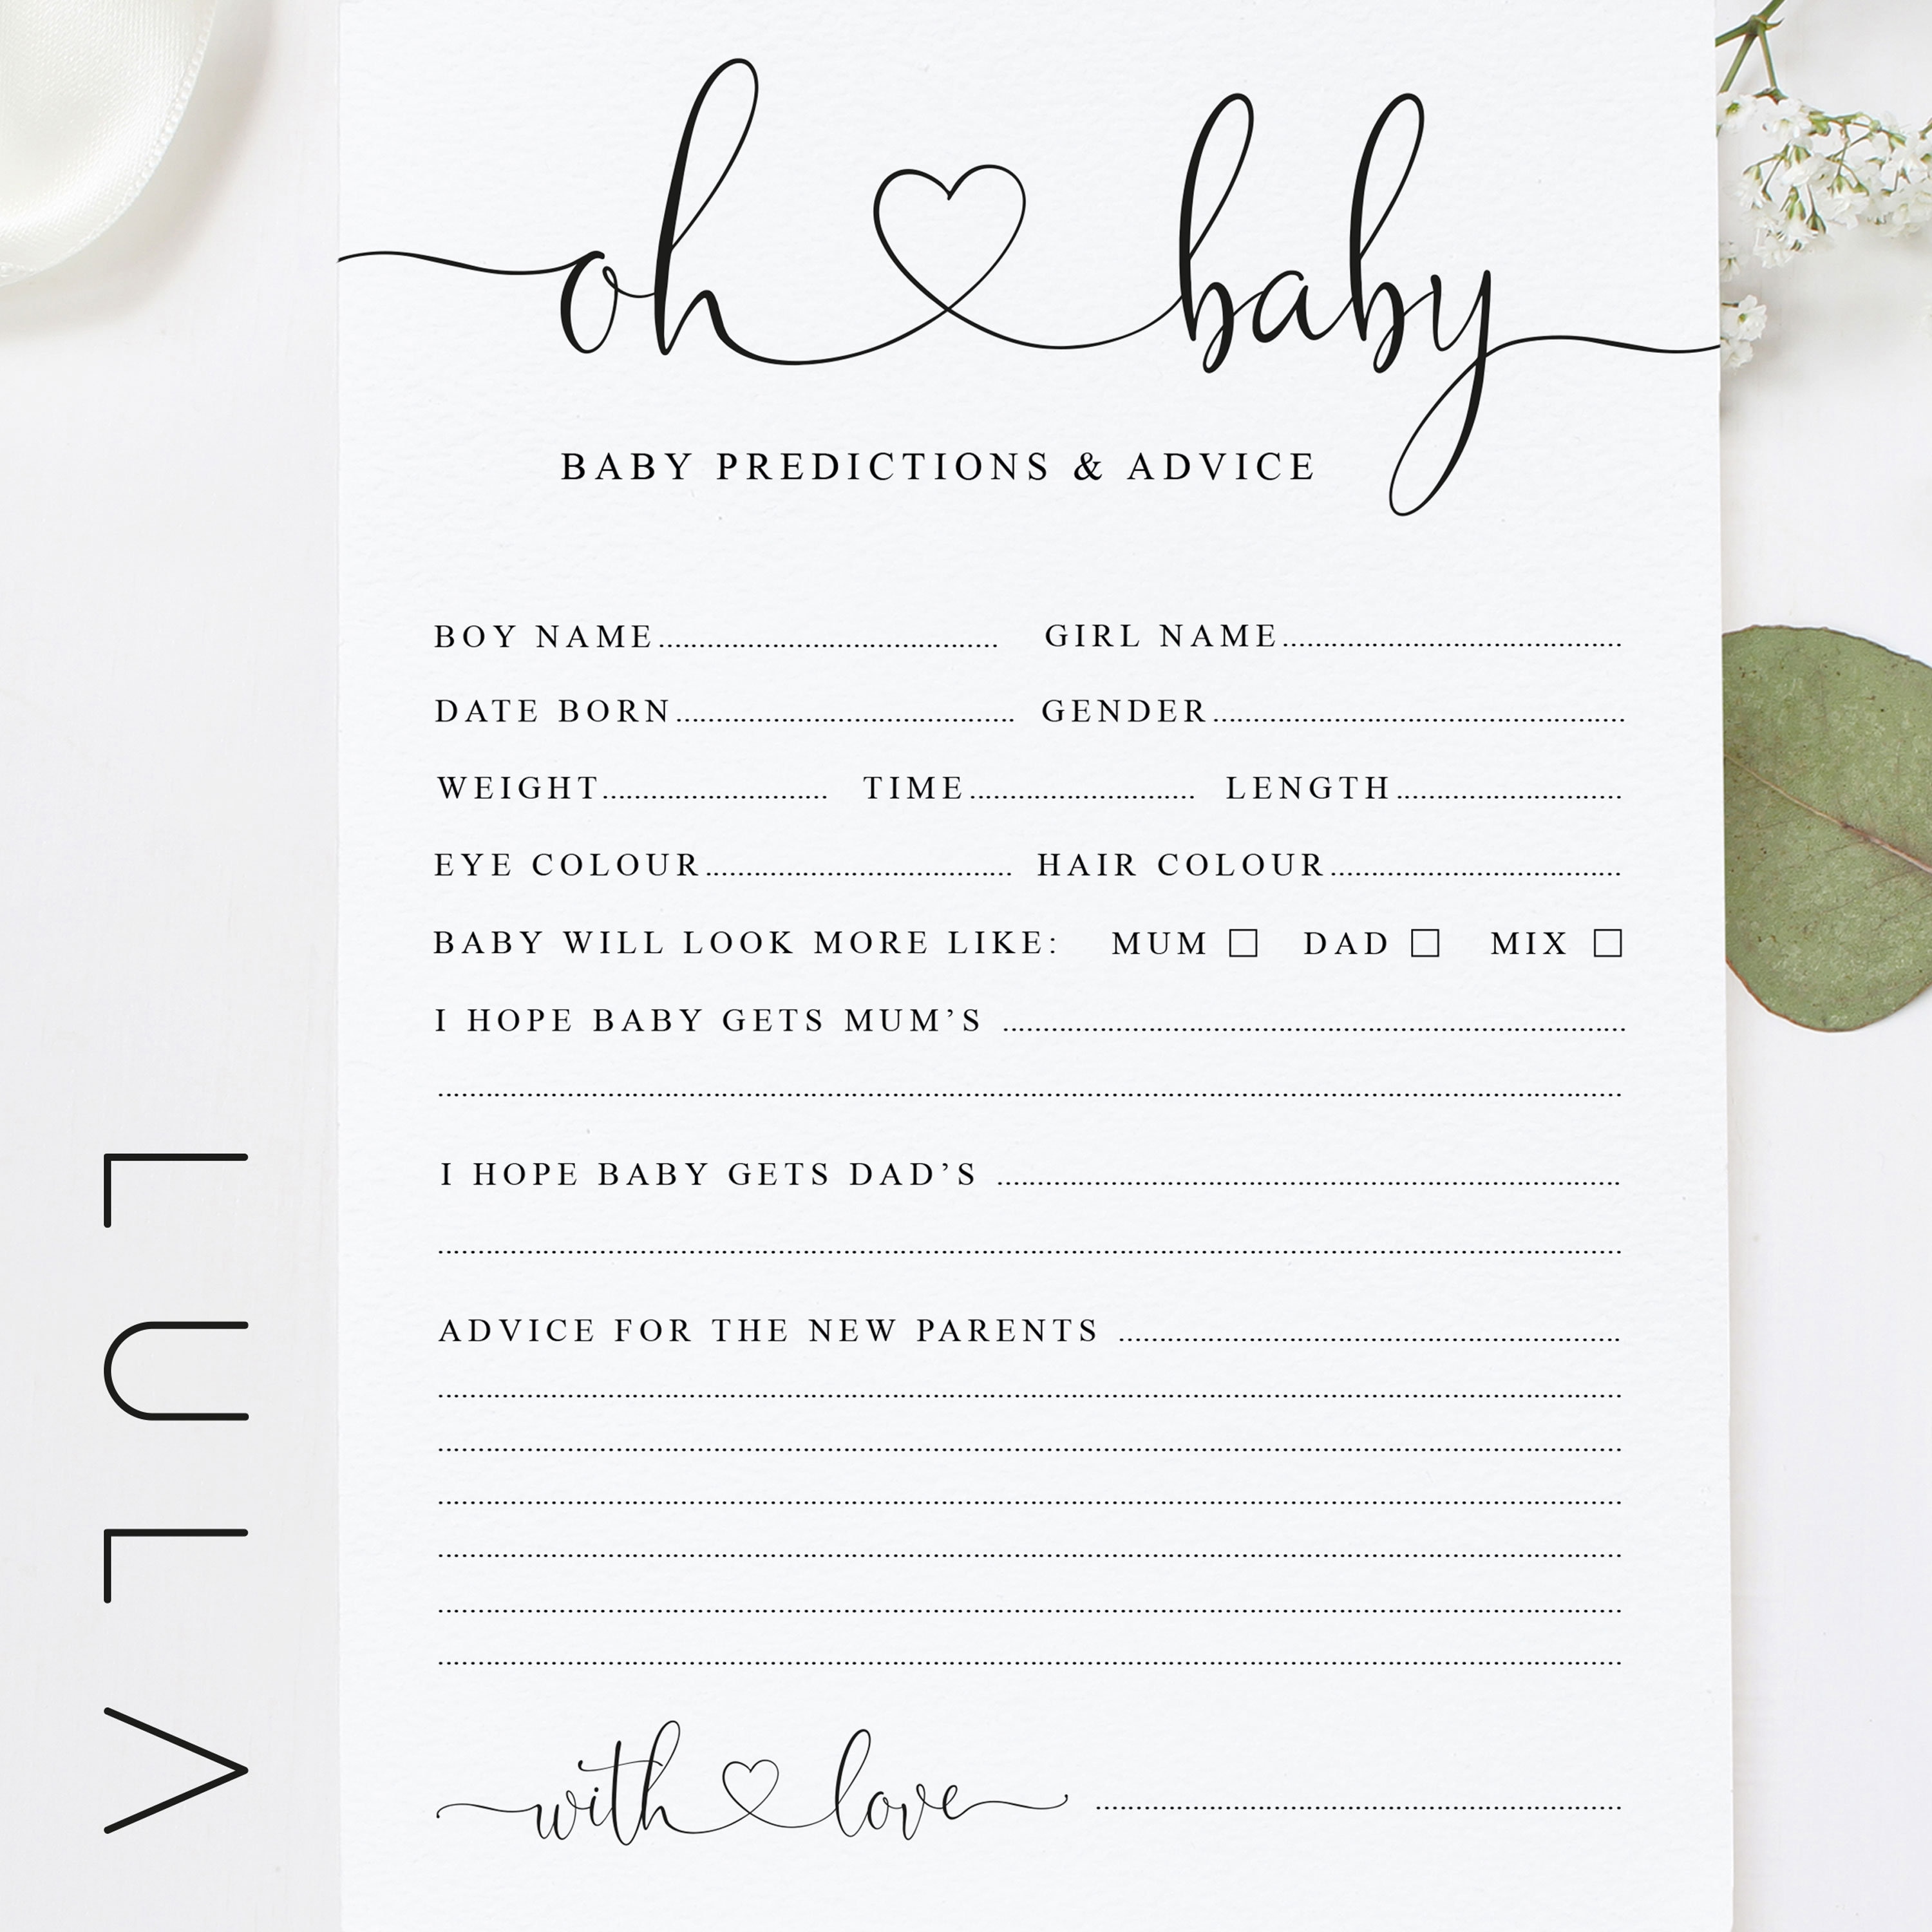 oh baby
BABY PREDICTIONS & ADVICE
BOY NAME GIRL NAME
DATE BORN GENDER
WEIGHT TIME LENGTH
EYE COLOUR HAIR COLOUR
BABY WILL LOOK MORE LIKE: MUM DAD MIX
I HOPE BABY GETS MUM’S
I HOPE BABY GETS DAD’S
ADVICE FOR THE NEW PARENTS
with love
LULΛ